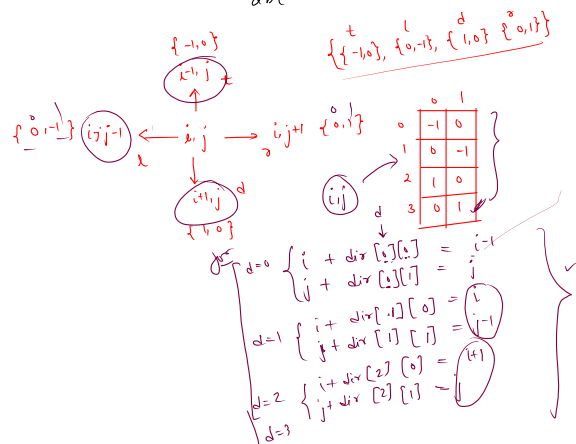 t l d r
{{-1,0}, {0,-1}, {1,0} {0,1}}
{-1,0}
i-1, j
t
{0,-1} i, j-1
l
i, j
i, j+1 {0,1}
r
i+1, j d
{1,0}
0 1
0 -1 0
1 0 -1
2 1 0
3 0 1
i, j
d
for
d=0 { i + dir [0][0] = i-1
j + dir [0][1] = j
d=1 { i + dir [1][0] = i
j + dir [1][1] = j-1
d=2 { i + dir [2][0] = i+1
j + dir [2][1] = j
d=3